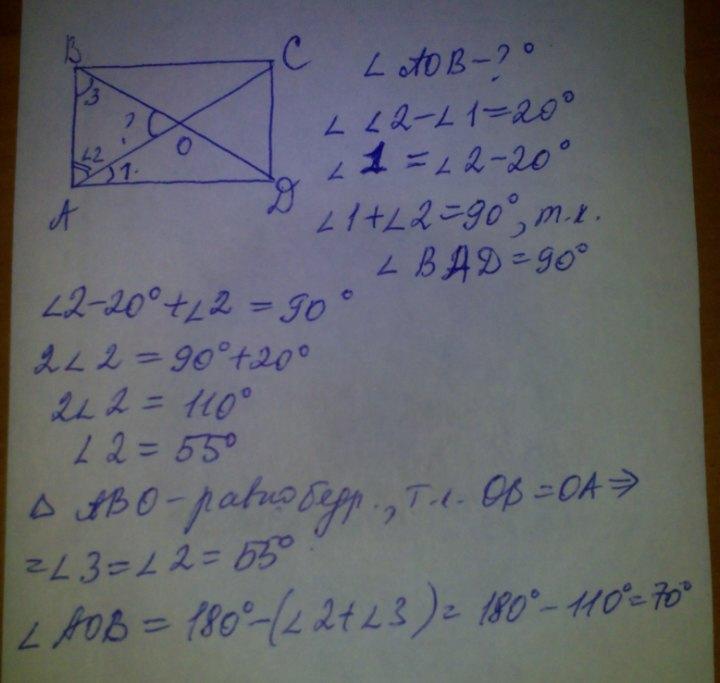 B
C
3
?
O
∠2
1.
A
D
∠ AOB - ?°
∠ ∠2 - ∠1 = 20°
∠ 1 = ∠ 2 - 20°
∠1 + ∠2 = 90°, т.к.
∠ BAD = 90°
∠2 - 20° + ∠2 = 90°
2∠2 = 90° + 20°
2∠2 = 110°
∠2 = 55°
△ ABO - равнобедр., т.к. OB = OA ⇒
= ∠3 = ∠2 = 55°
∠ AOB = 180° - (∠2 + ∠3) = 180° - 110° = 70°